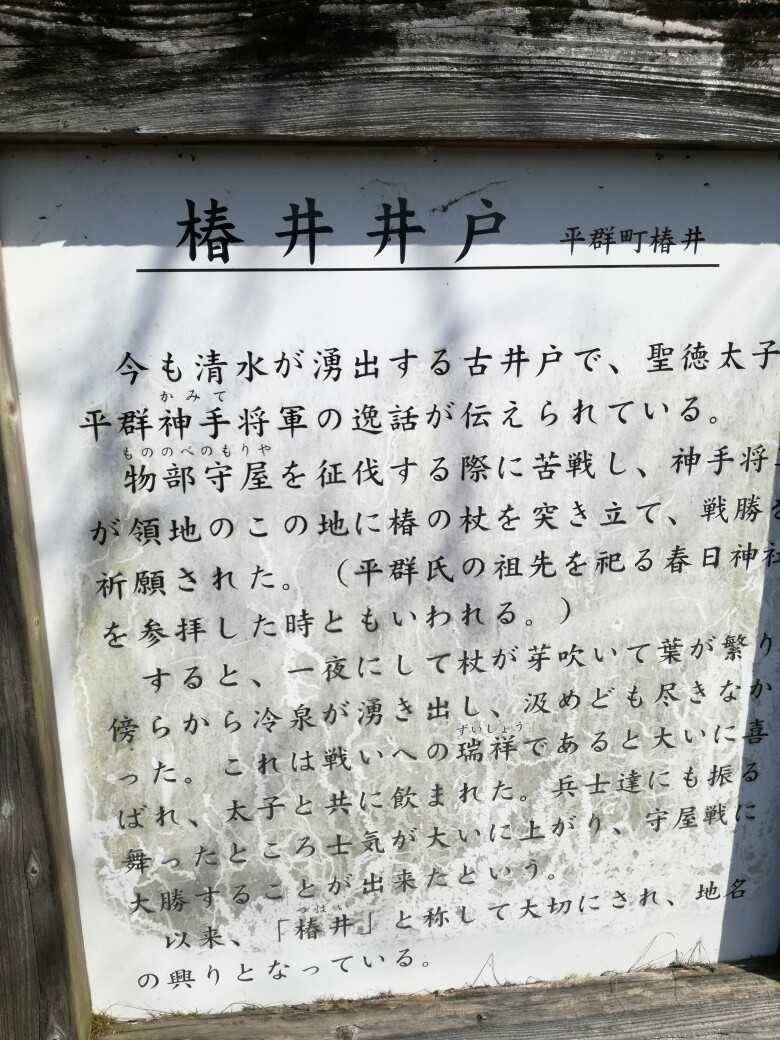 椿井井戸 平群町椿井
今も清水が湧出する古井戸で、聖徳太子
かみて
平群神手将軍の逸話が伝えられている。
もののべのもりや
物部守屋を征伐する際に苦戦し、神手将
が領地のこの地に椿の杖を突き立て、戦勝を
祈願された。（平群氏の祖先を祀る春日神社
を参拝した時ともいわれる。）
すると、一夜にして杖が芽吹いて葉が繁り
傍らから冷泉が湧き出し、汲めども尽きなか
ずいしょう
った。これは戦いへの瑞祥であると大いに喜
ばれ、太子と共に飲まれた。兵士達にも振る
舞ったところ士気が大いに上がり、守屋戦に
大勝することが出来たという。
つばい
以来、「椿井」と称して大切にされ、地名
の興りとなっている。